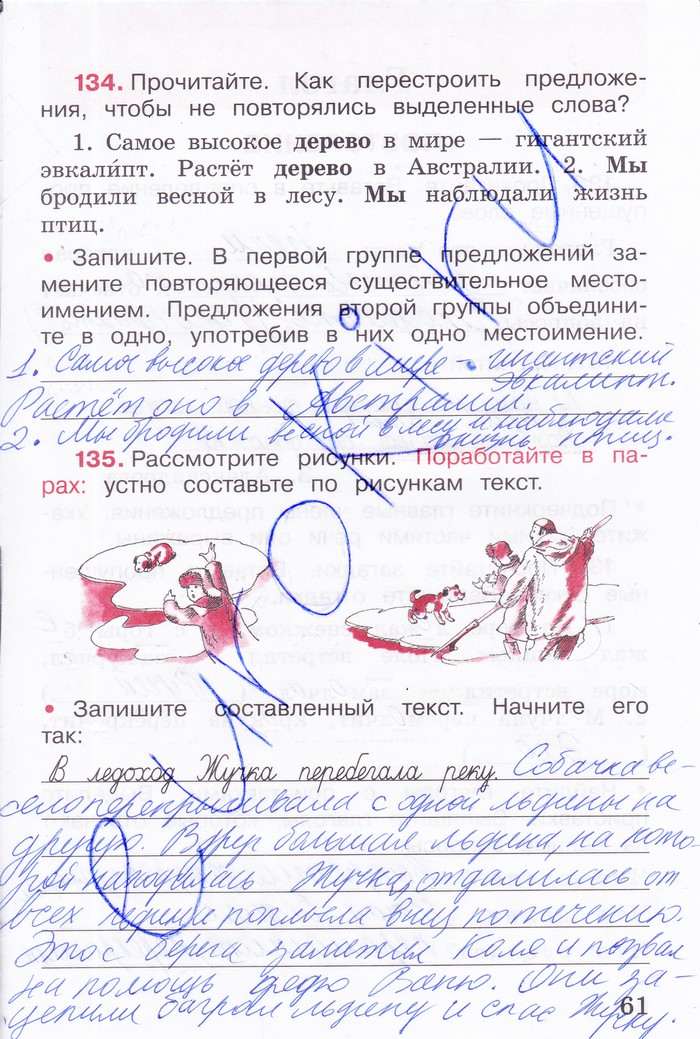 134. Прочитайте. Как перестроить предложе-
ния, чтобы не повторялись выделенные слова?
1. Самое высокое дерево в мире — гигантский
эвкали́пт. Растёт дерево в Австралии. 2. Мы
бродили весной в лесу. Мы наблюдали жизнь
птиц.
• Запишите. В первой группе предложений за-
мените повторяющееся существительное место-
имением. Предложения второй группы объедини-
те в одно, употребив в них одно местоимение.
1. Самое высокое дерево в мире - гигантский
эвкалипт.
Растёт оно в Австралии.
2. Мы бродили весной в лесу и наблюдали
жизнь птиц.
135. Рассмотрите рисунки. Поработайте в па-
рах: устно составьте по рисункам текст.
• Запишите составленный текст. Начните его
так:
В ледоход Жучка перебегала реку. Собачка ве-
село перепрыгивала с одной льдины на
другую. Вдруг большая льдина, на кото-
рой находилась Жучка, отдалилась от
всех льдин и поплыла вниз по течению.
Это с берега заметил Коля и позвал
на помощь дядю Ваню. Они за-
цепили багром льдину и спас Жучку.
61